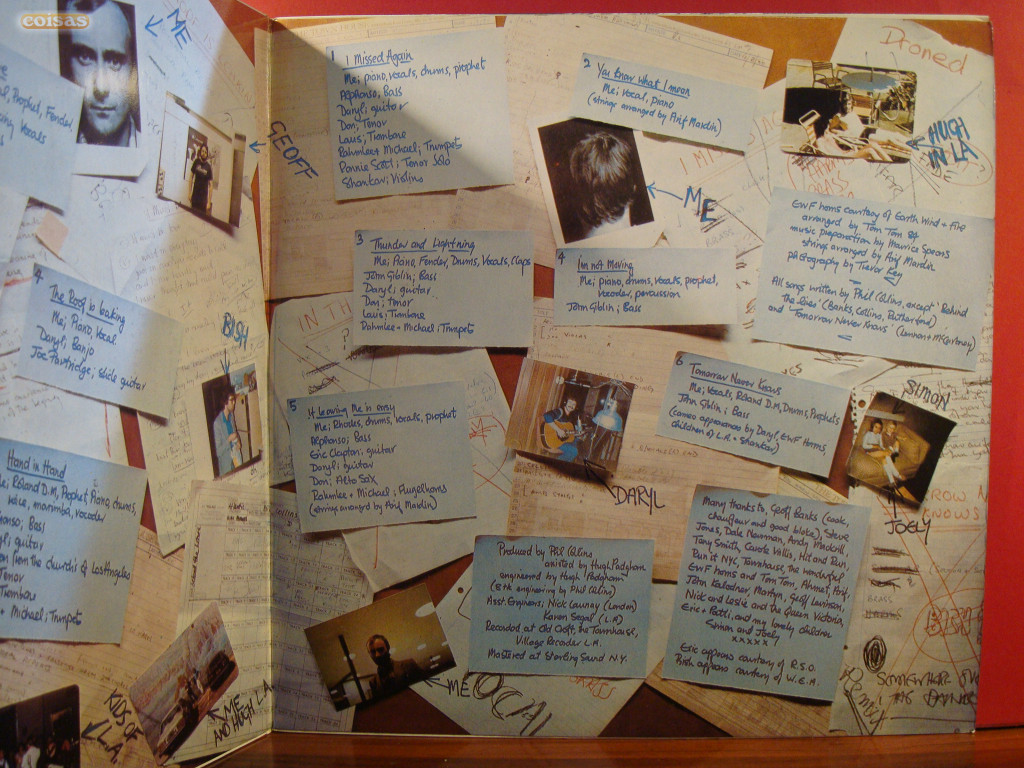 coisas
ME
GEOFF
, Prophet, Fender
Vocals
4
The Roof is Leaking
Me; Piano, Vocal
Daryl; Banjo
Joe Partridge; slide guitar
BISH
Hand in Hand
Roland D.M, Prophet, Piano, drums,
voice, marimba, vocoder
Bass
guitar
from the churches of Los Angeles
Tenor
+ Michael; Trumpets
KIDS OF
L.A.
ME
AND HUGH L.A.
1
I Missed Again
Me; piano, vocals, drums, prophet
Alphonso; Bass
Daryl; guitar
Don; Tenor
Louis; Trombone
Rahmlee + Michael; Trumpets
Ronnie Scott; Tenor Solo
Shankar; Violins
2
You Know What I mean
Me; Vocal, piano
(strings arranged by Arif Mardin)
ME
Droned
HUGH
IN LA
3
Thunder and Lightning
Me; Piano, Fender, Drums, Vocals, Claps
John Giblin; Bass
Daryl; guitar
Don; tenor
Louis; Trombone
Rahmlee + Michael; Trumpets
4
I'm not Moving
Me; piano, drums, vocals, prophet,
vocoder, percussion
John Giblin; Bass
EWF horns courtesy of Earth Wind + Fire
arranged by Tom Tom 84
music preparation by Maurice Spears
strings arranged by Arif Mardin
photography by Trevor Key
All songs written by Phil Collins, except 'Behind
The lines' (Banks, Collins, Rutherford)
and 'Tomorrow Never Knows' (Lennon + McCartney)
IN TH
5
If Leaving Me is easy
Me; Rhodes, drums, vocals, prophet
Alphonso; Bass
Eric Clapton; guitar
Daryl; guitar
Don; Alto Sax
Rahmlee + Michael; Flugelhorns
(strings arranged by Arif Mardin)
DARYL
6
Tomorrow Never Knows
Me; Vocals, Roland D.M, Drums, Prophets
John Giblin; Bass
(cameo appearances by Daryl, EWF Horns,
children of L.A. + Shankar)
SIMON
JOELY
Produced by Phil Collins
assisted by Hugh Padgham
engineered by Hugh Padgham
(8 trk engineering by Phil Collins)
Asst Engineers; Nick Launay (London)
Karen Segal (L.A)
Recorded at Old Croft, the Townhouse,
Village Recorder L.A.
Mastered at Sterling Sound N.Y.
ME
Many thanks to, Geoff Banks (cook,
chauffeur and good bloke), Steve
Jones, Dale Newman, Andy Mackrill,
Tony Smith, Carole Willis, Hit and Run,
Run it NYC, Townhouse, the wonderful
EWF horns and Tom Tom, Ahmet, Arif,
John Kalodner, Martyn, Geoff
Nick and Leslie and the Queen Victoria,
Eric + Patti, and my lovely children
Simon and Joely
xxxxx
Eric appears courtesy of R.S.O.
appears courtesy of W.E.A.
ROW N
KNOWS